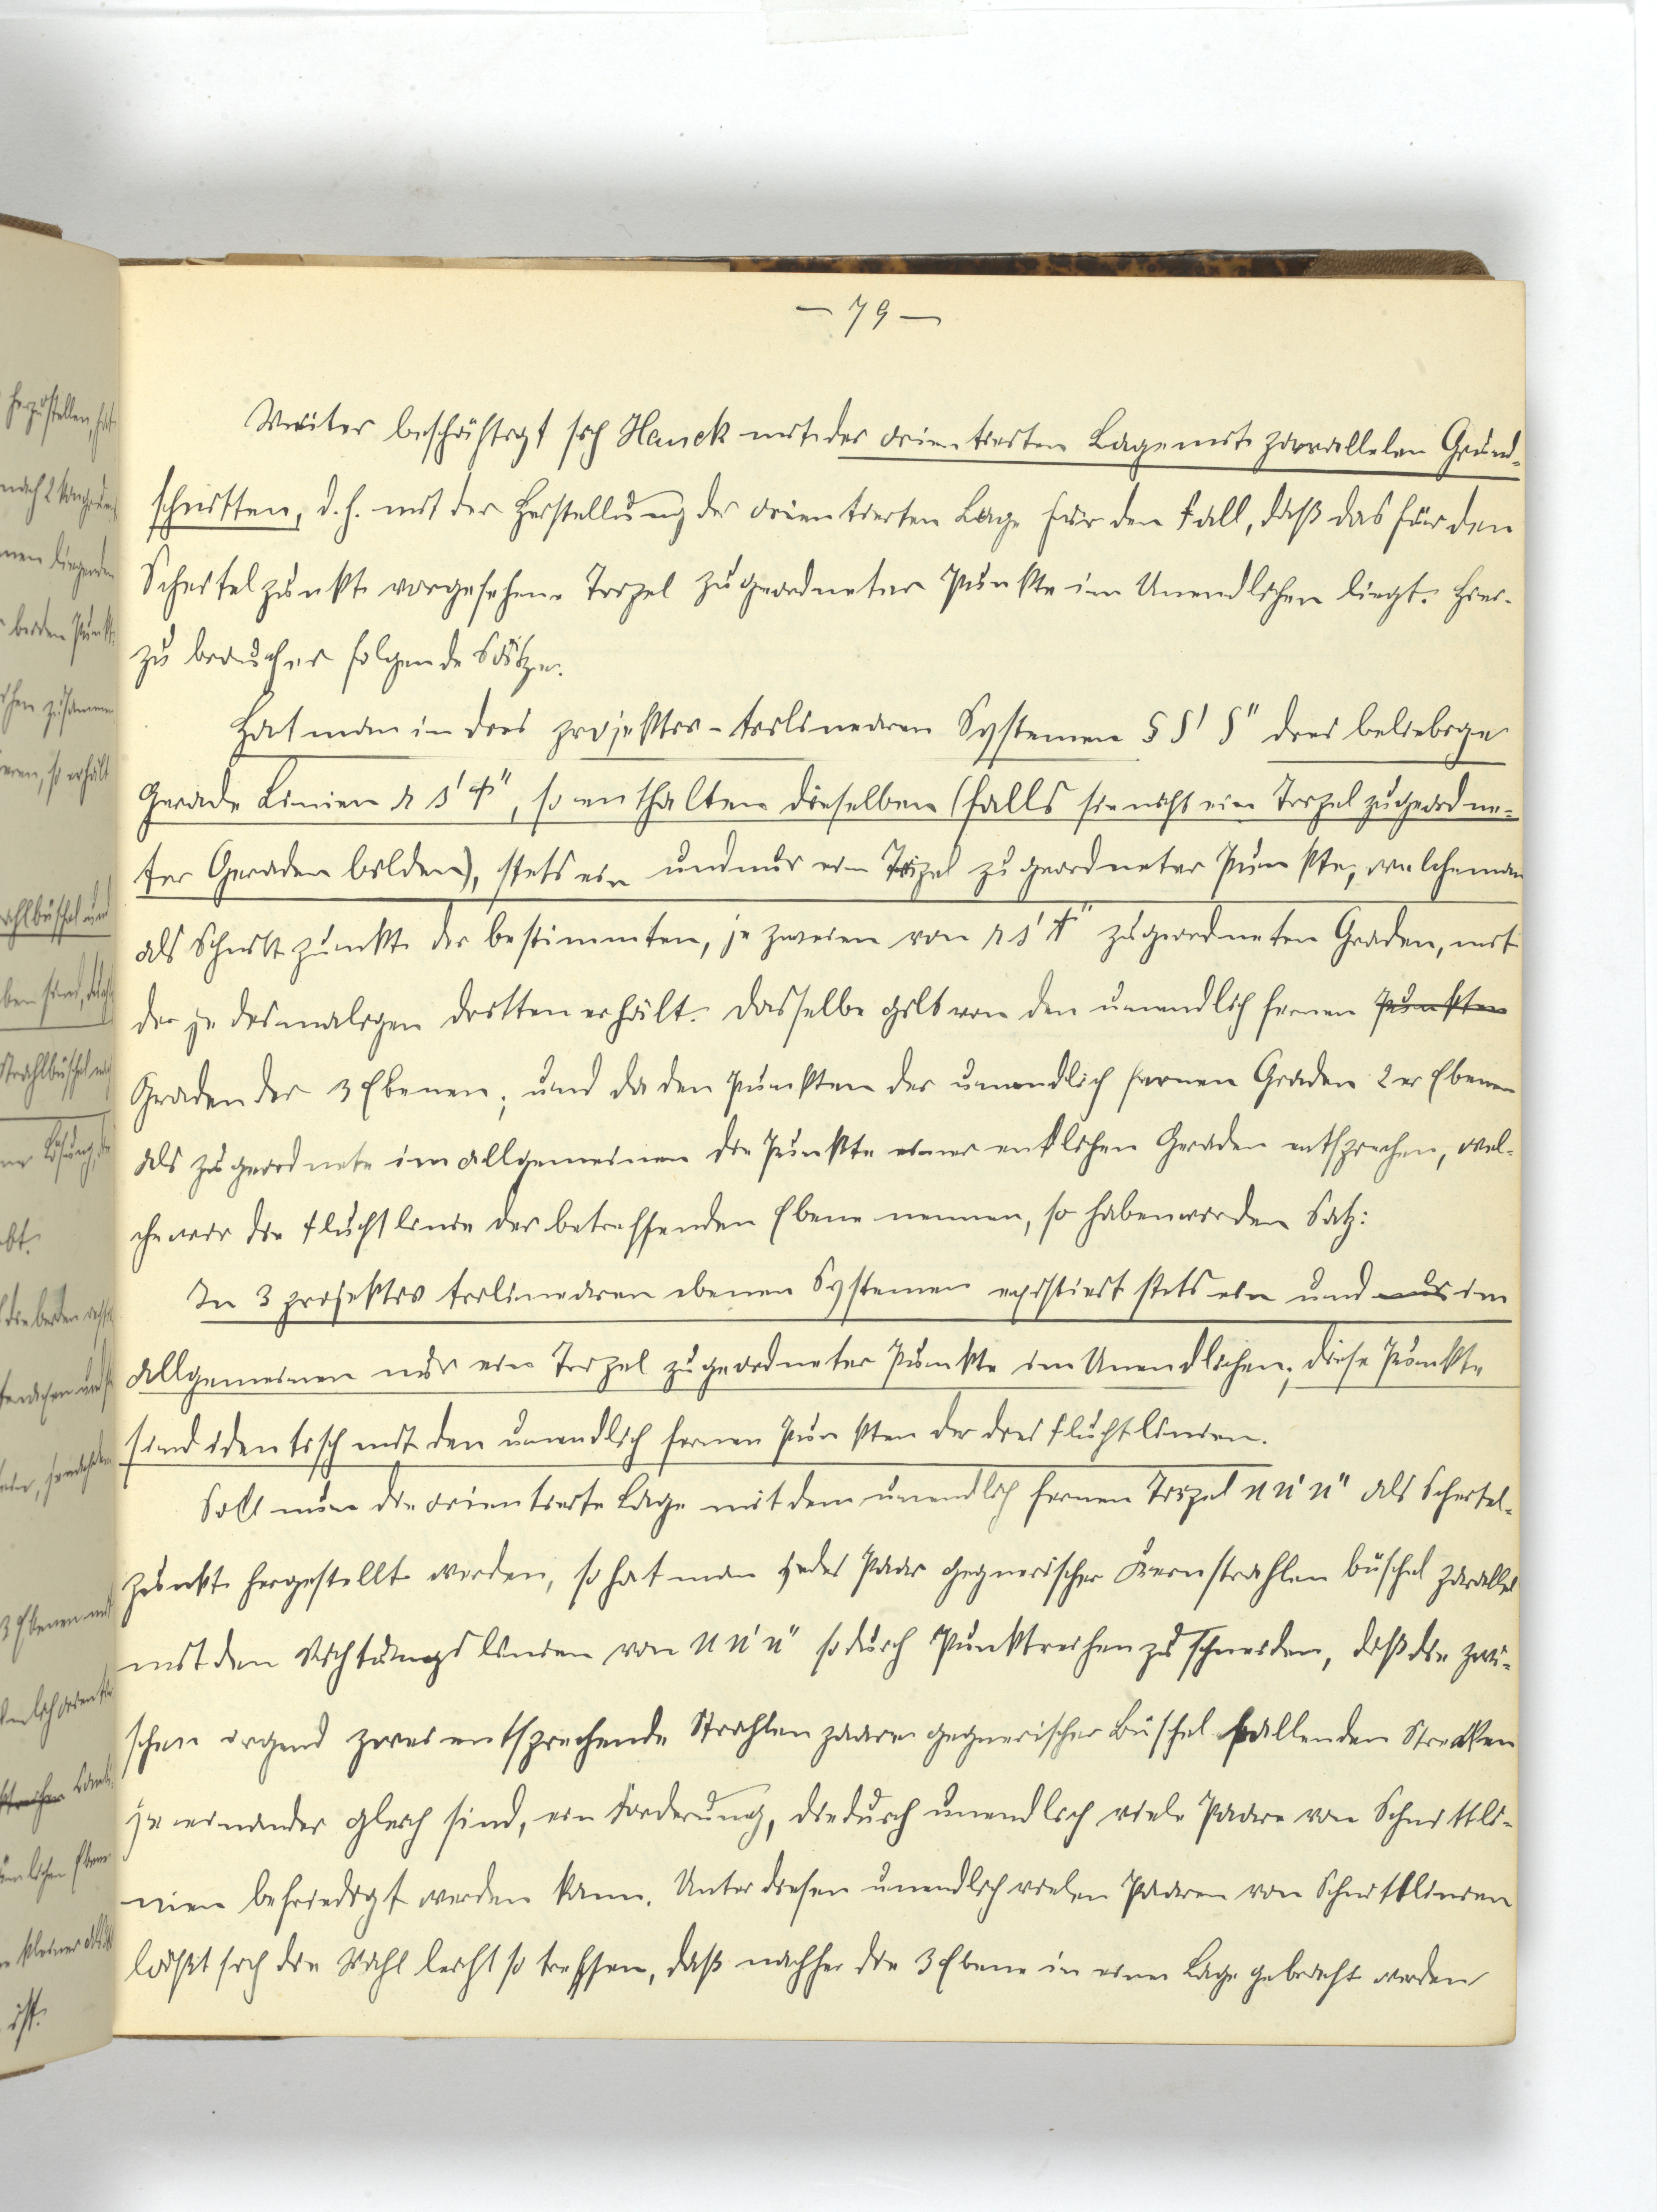 — 79 —
Weiter beschäftigt sich Hauck mit der orientierten Lage mit parallelen Grund-
schnitten, d. h. mit der Herstellung der orientierten Lage für den Fall, daß das für den
Scheitelpunkt vorgesehene Tripel zugeordneter Punkte im Unendlichen liegt. Hier-
zu braucht er folgende Sätze.
Hat man in drei projektiv-trilinearen Systemen S S' S'' drei beliebige
Gerade Linien r s' t'', so enthalten dieselben (falls sie nicht ein Tripel zugeordne-
ter Geraden bilden), stets ein und nur ein Tripel zugeordneter Punkte, welche man
als Schnittpunkte der bestimmten, je zweien von r s' t'' zugeordneten Graden, mit
der jedesmaligen dritten erhält. Dasselbe gilt von den unendlich fernen Punkten
Graden der 3 Ebenen; und da den Punkten der unendlich fernen Graden 2er Ebenen
als zugeordnete im allgemeinen die Punkte einer entlichen Geraden entsprechen, wel-
che wir die Fluchtlinie der betreffenden Ebene nennen, so haben wir den Satz:
In 3 projektiv trilinearen ebenen Systemen existiert stets ein und nur im
allgemeinen nur ein Tripel zugeordneter Punkte im Unendlichen; diese Punkte
sind identisch mit den unendlich fernen Punkten der drei Fluchtlinien.
Soll nun die orientierte Lage mit dem unendlich fernen Tripel U U' U'' als Scheitel-
punkt hergestellt werden, so hat man jedes Paar gegnerischer Kernstrahlenbüschel parallel
mit den Richtungslinien von U U' U'' so durch Punktreihen zu schneiden, daß die zwi-
schen irgend zwei entsprechende Strahlenpaare gegnerischer Büschel fallenden Strecken
je einander gleich sind, ein Forderung, die durch unendlich viele Paare von Schnittli-
nien befriedigt werden kann. Unter diesen unendlich vielen Paaren von Schnittlinien
läßt sich die Wahl leicht so treffen, daß nachher die 3 Ebene in einer Lage gebracht werden